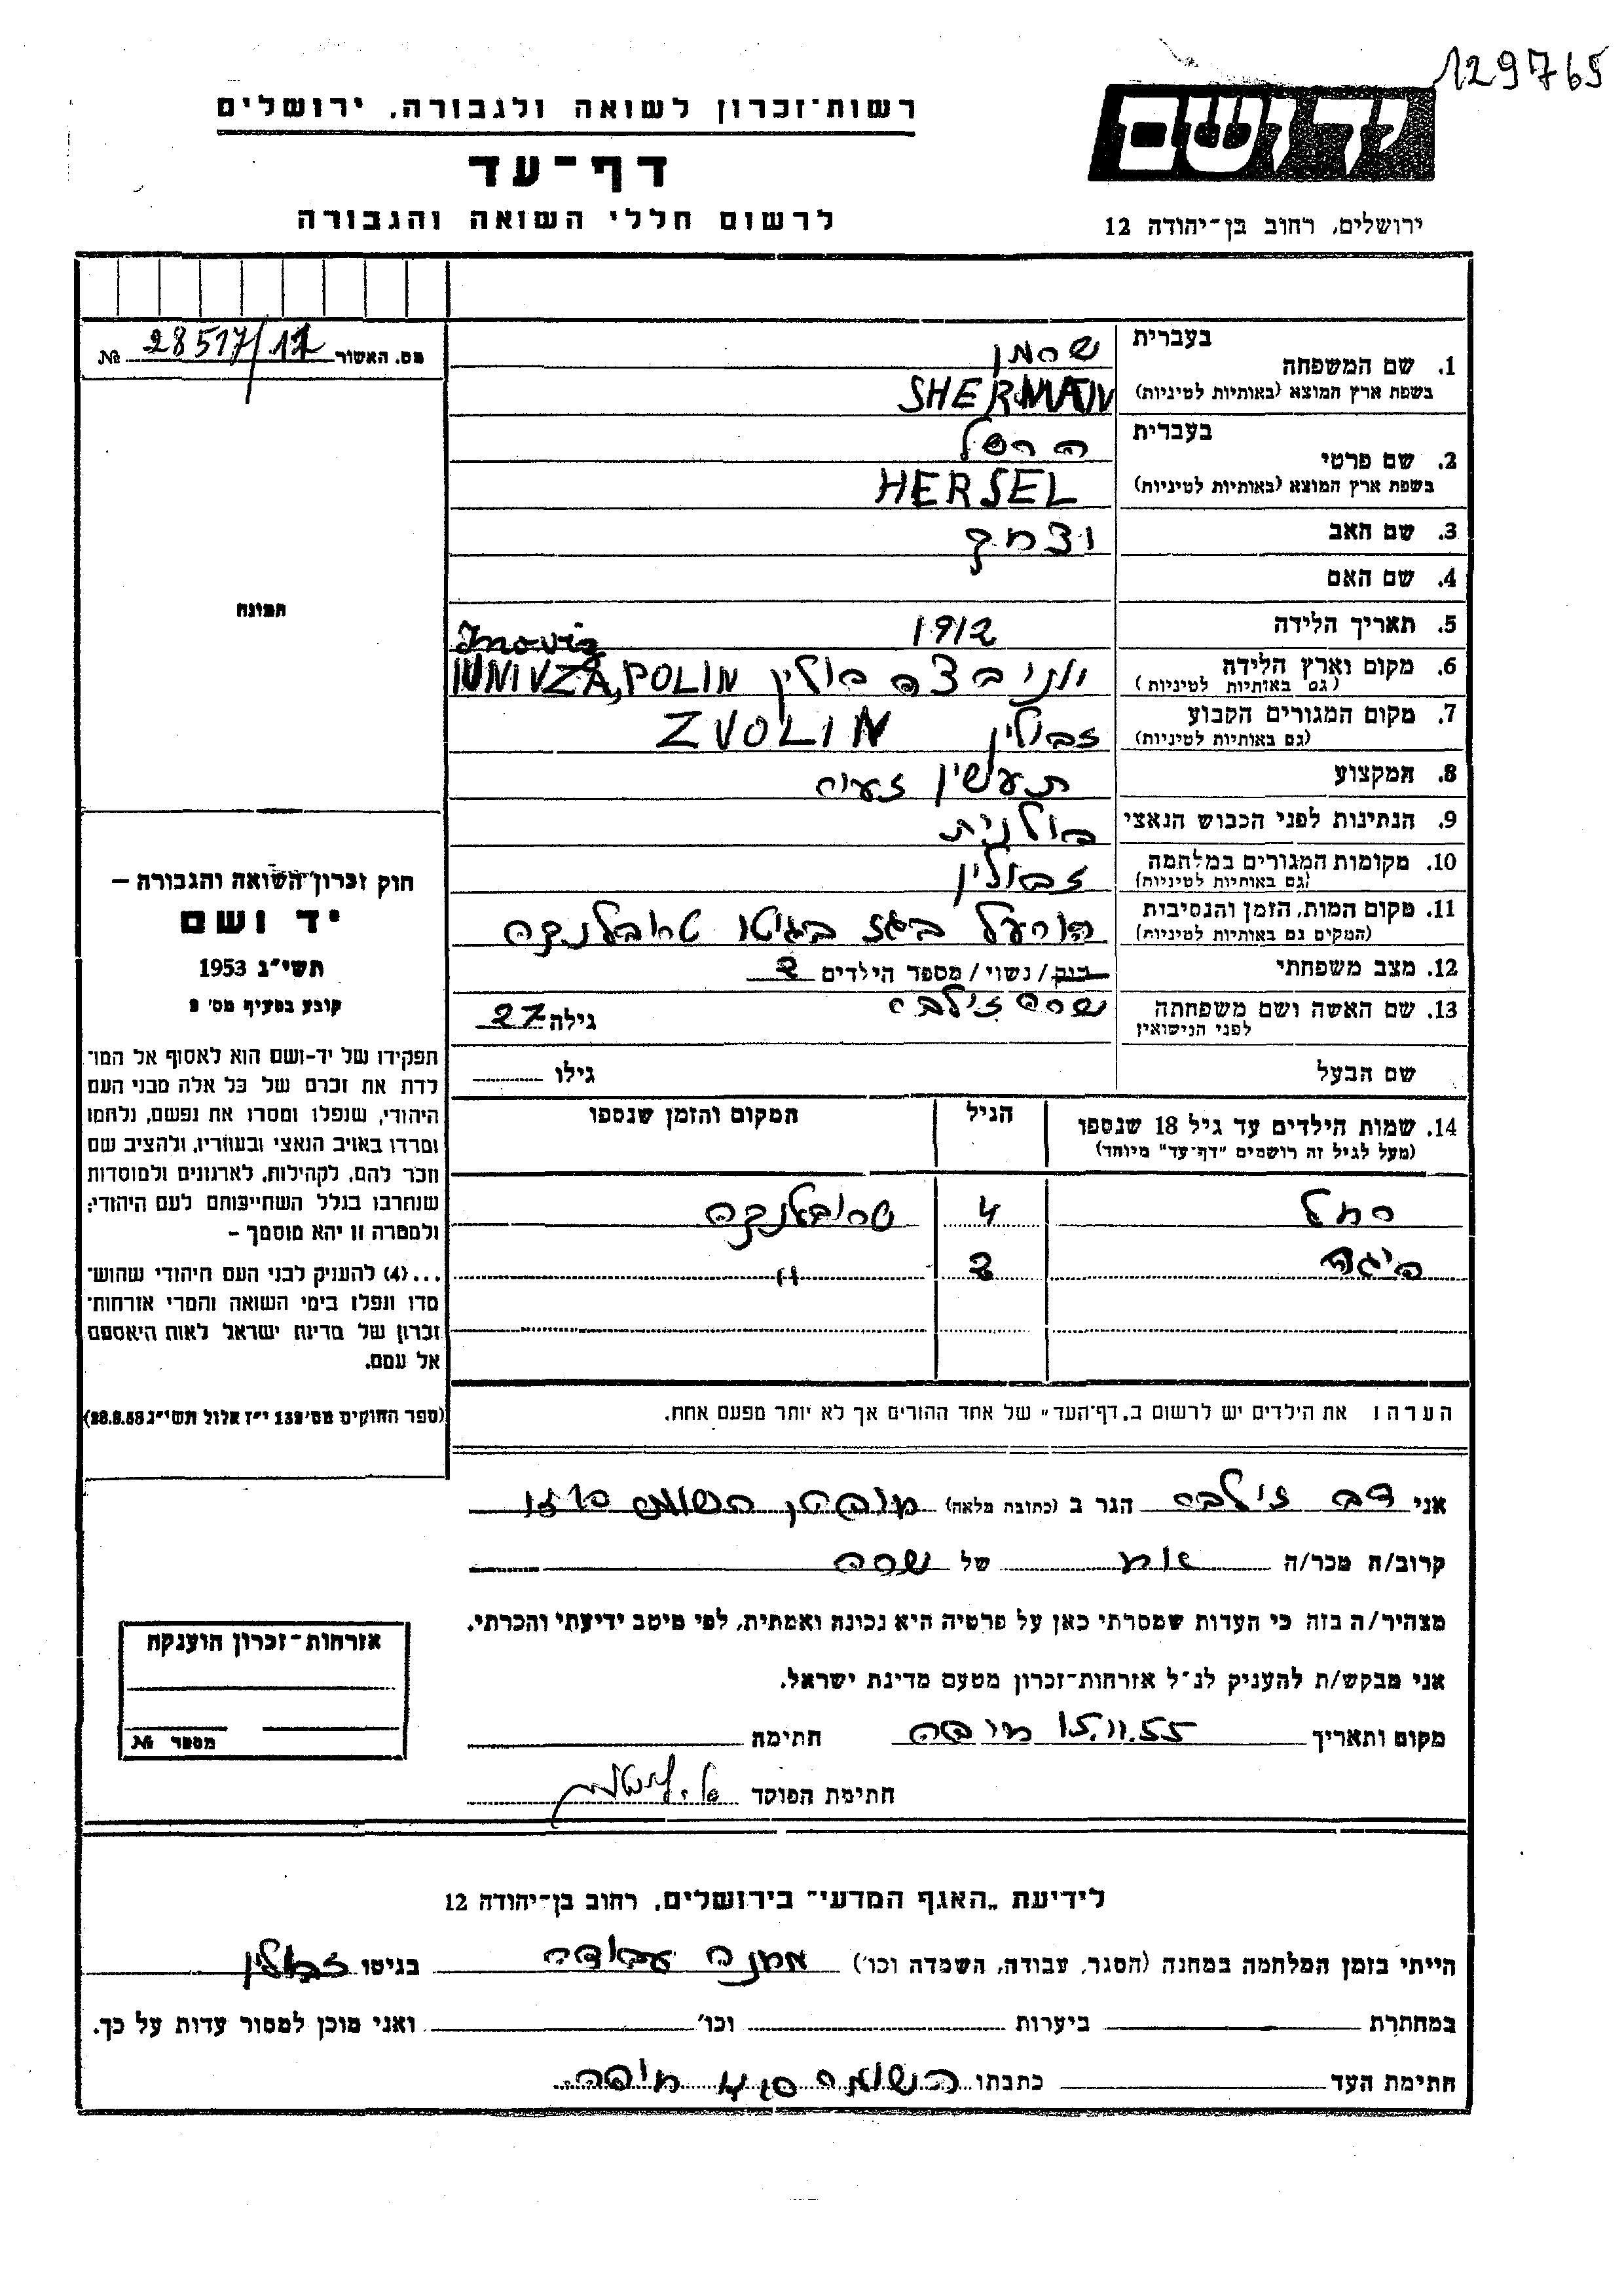 129765
יד ושם
רשות־זכרון לשואה ולגבורה, ירושלים
דף־עד
לרשום חללי השואה והגבורה
ירושלים, רחוב בן־יהודה 12
מס. האשור 28517/12 №
בעברית
1. שם המשפחה שרמן
בשפת ארץ המוצא (באותיות לטיניות) SHERMAN
בעברית
2. שם פרטי הרשל
בשפת ארץ המוצא (באותיות לטיניות) HERSEL
3. שם האב
4. שם האם
תמונה
5. תאריך הלידה 1912
6. מקום וארץ הלידה פולין POLIN
(גם באותיות לטיניות)
7. מקום המגורים הקבוע זבולין ZVOLIN
(גם באותיות לטיניות)
8. המקצוע תעשין זעיר
9. הנתינות לפני הכבוש הנאצי פולנית
10. מקומות המגורים במלחמה זבולין
(גם באותיות לטיניות)
11. מקום המות, הזמן והנסיבות הורעל בגז בגיטו טרבלנקה
(המקום גם באותיות לטיניות)
12. מצב משפחתי רווק / נשוי / מספר הילדים 2
13. שם האשה ושם משפחתה שרה זילבר גילה 27
לפני הנישואין
שם הבעל גילו
14. שמות הילדים עד גיל 18 שנספו הגיל המקום והזמן שנספו
(מעל לגיל זה רושמים "דף־עד" מיוחד)
רחל 4 טרובלנקה
2 "
הערה: את הילדים יש לרשום ב„דף־העד" של אחד ההורים אך לא יותר מפעם אחת.
חוק זכרון השואה והגבורה –
יד ושם
תשי"ג 1953
קובע בסעיף מס' 2
תפקידו של יד־ושם הוא לאסוף אל המו־
לדת את זכרם של כל אלה מבני העם
היהודי, שנפלו ומסרו את נפשם, נלחמו
ומרדו באויב הנאצי ובעוזריו, ולהציב שם
וזכר להם, לקהילות, לארגונים ולמוסדות
שנחרבו בגלל השתייכותם לעם היהודי;
ולמטרה זו יהא מוסמך –
...(4) להעניק לבני העם היהודי שהוש־
מדו ונפלו בימי השואה והמרי אזרחות־
זכרון של מדינת ישראל לאות היאספם
אל עמם.
(ספר החוקים מס' 132 י"ז אלול תשי"ג 28.8.53)
אני דב זילבר הגר ב (כתובת מלאה)
קרוב/ה מכר/ה אח של שרה
מצהיר/ה בזה כי העדות שמסרתי כאן על פרטיה היא נכונה ואמתית, לפי מיטב ידיעתי והכרתי.
אני מבקש/ת להעניק לנ"ל אזרחות־זכרון מטעם מדינת ישראל.
מקום ותאריך 15.11.55 חיפה חתימה
חתימת הפוקד
אזרחות־זכרון הוענקה
מספר №
לידיעת „האגף המדעי" בירושלים, רחוב בן־יהודה 12
הייתי בזמן המלחמה במחנה (הסגר, עבודה, השמדה וכו') עבודה בגיטו זבולין
במחתרת ביערות וכו' ואני מוכן למסור עדות על כך.
חתימת העד כתבתו חיפה